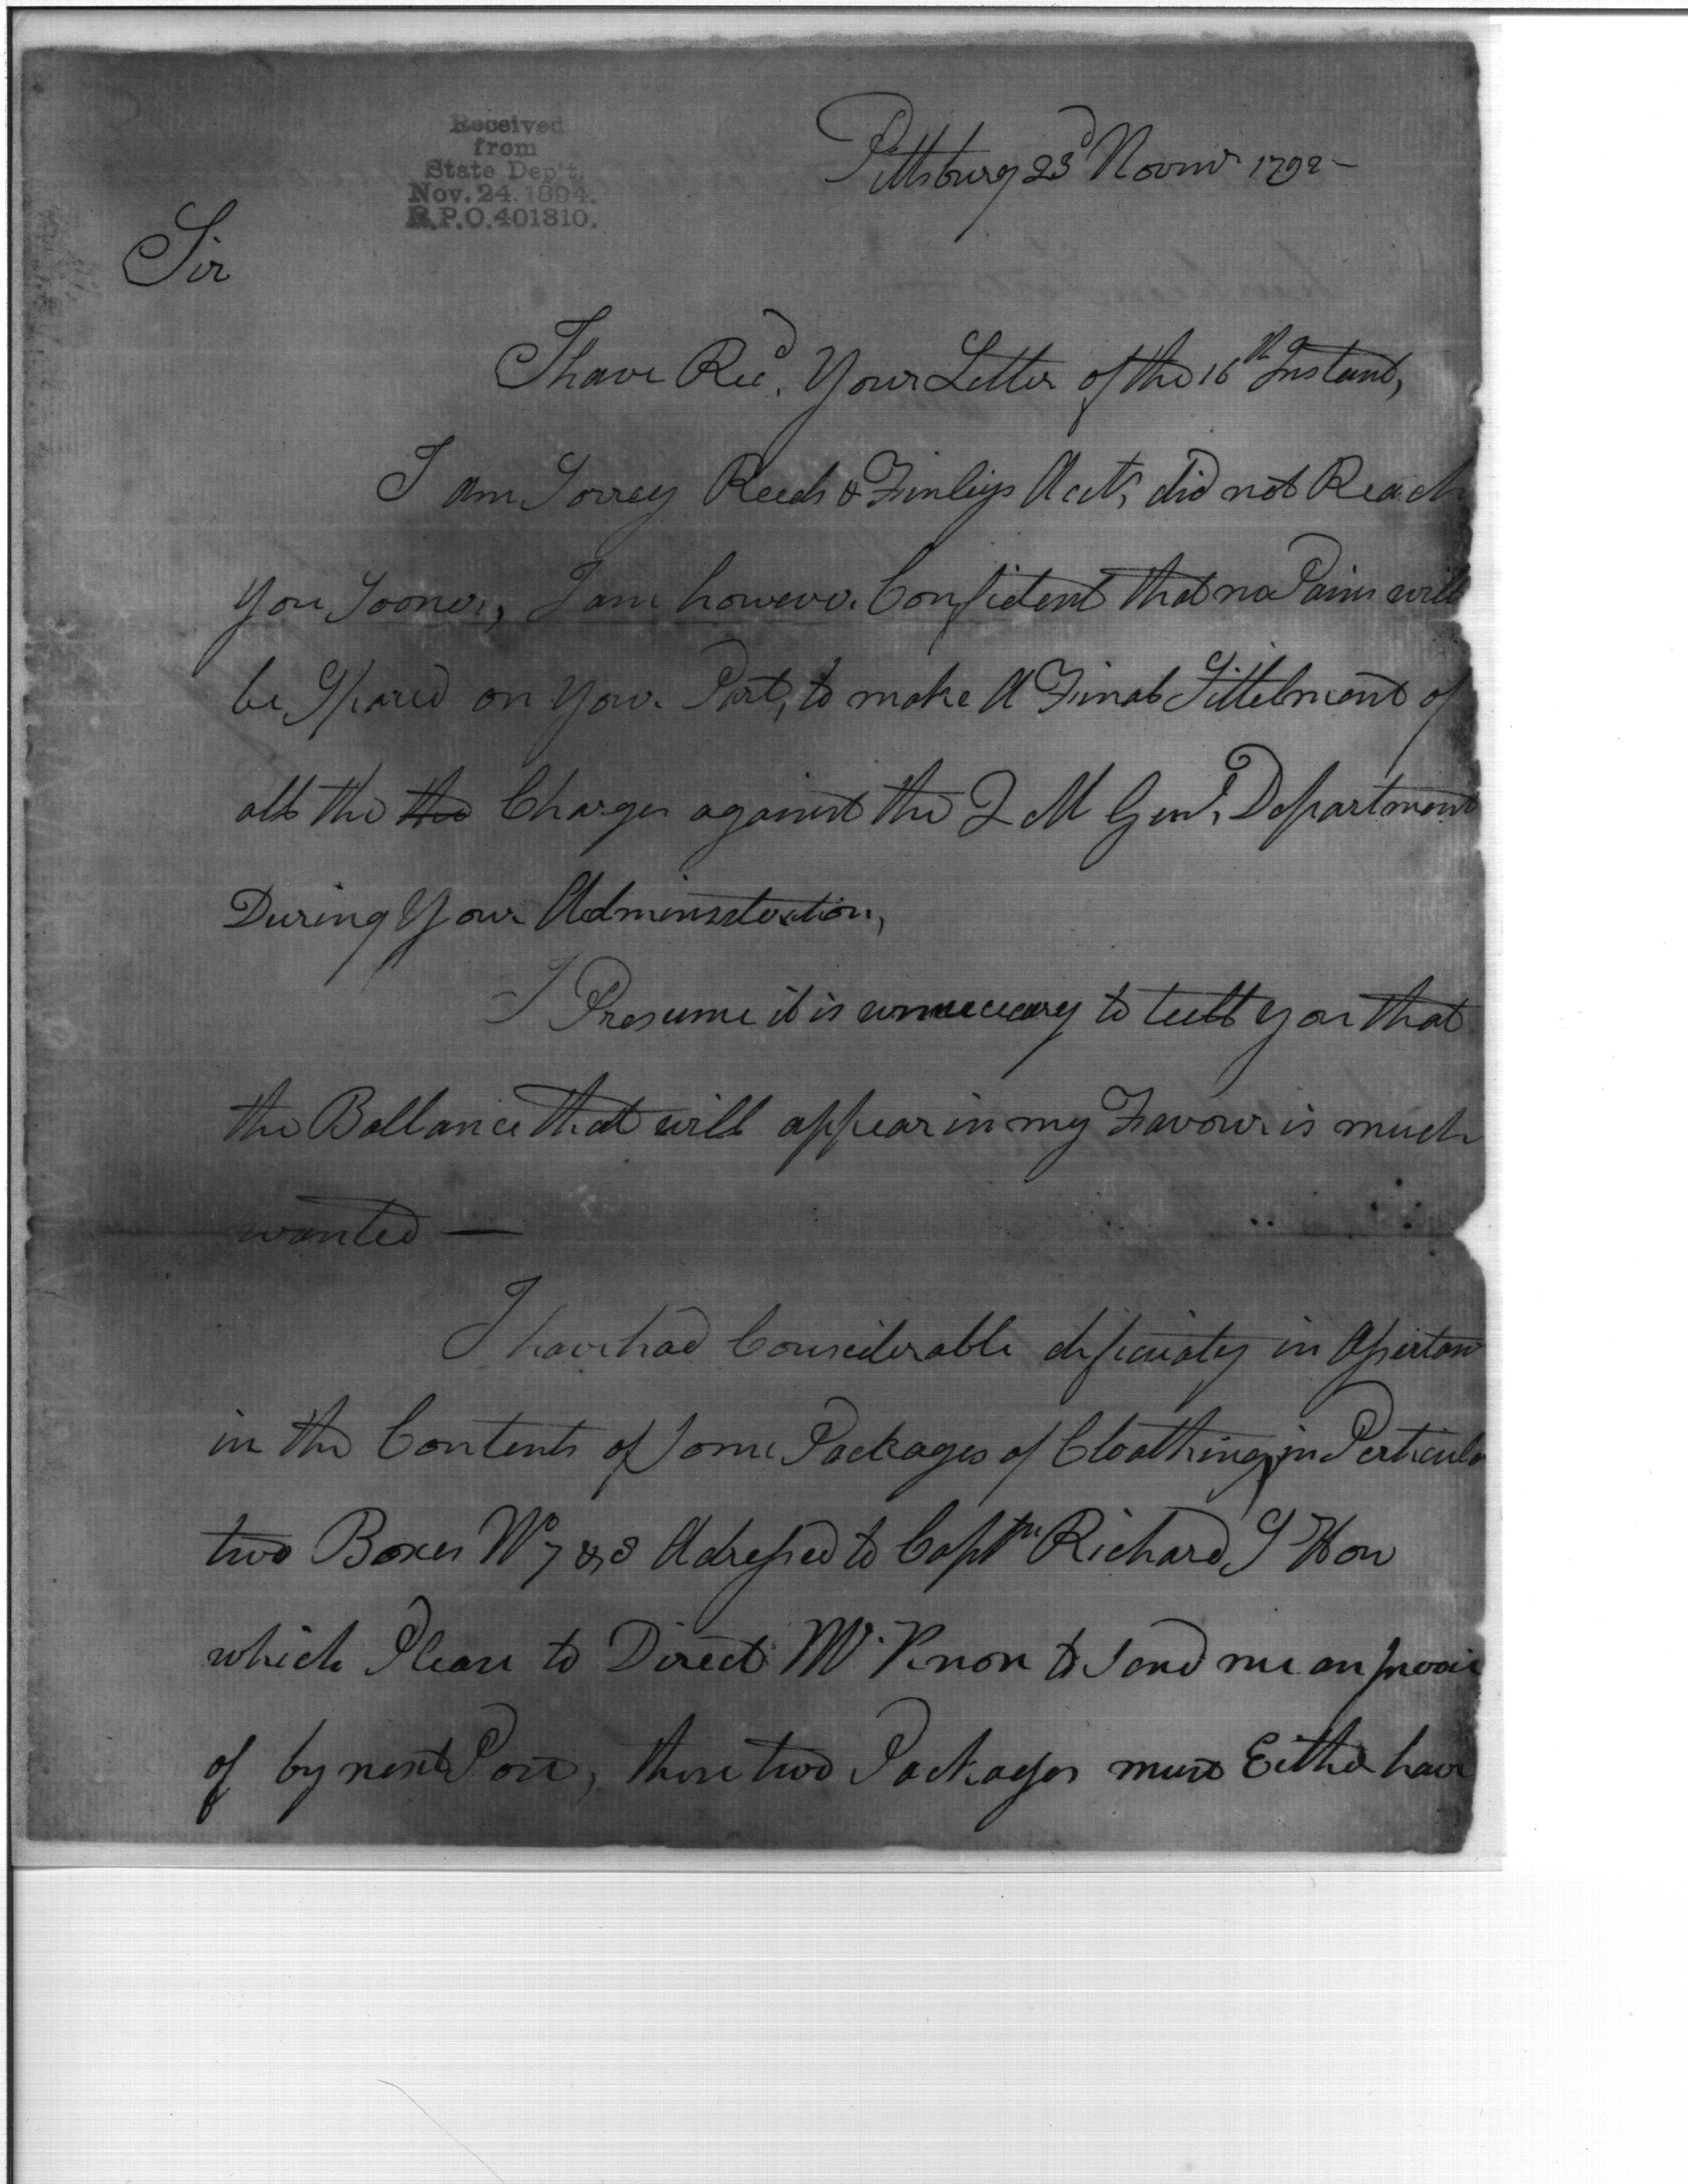 Received
from
State Dep't.
Nov. 24. 1894.
R.P.O. 401310.
Pittsburg 23d Novmr 1792 -
Sir
I have Recd. Your Letter of the 16th Instant,
I am Sorrey Reeds & Finleys Acts, did not Reach
You Sooner, I am however Confident that no Pains will
be Spared on Your Part, to make A Final Sittelment of
all the the Charges against the Q M Genl, Department
During Your Administration,
I Presume it is to tell you that
the Ballance that will appear in my Favour is much
wanted —
I have had Considerable in
in the Contents of Some Packages of Cloathing, in Perticular
two Boxes No 7 & 8 Adressed to Captn Richard S How
which Please to Direct Mr Knox to Send me an
of by next Post, these two Packages must Either have